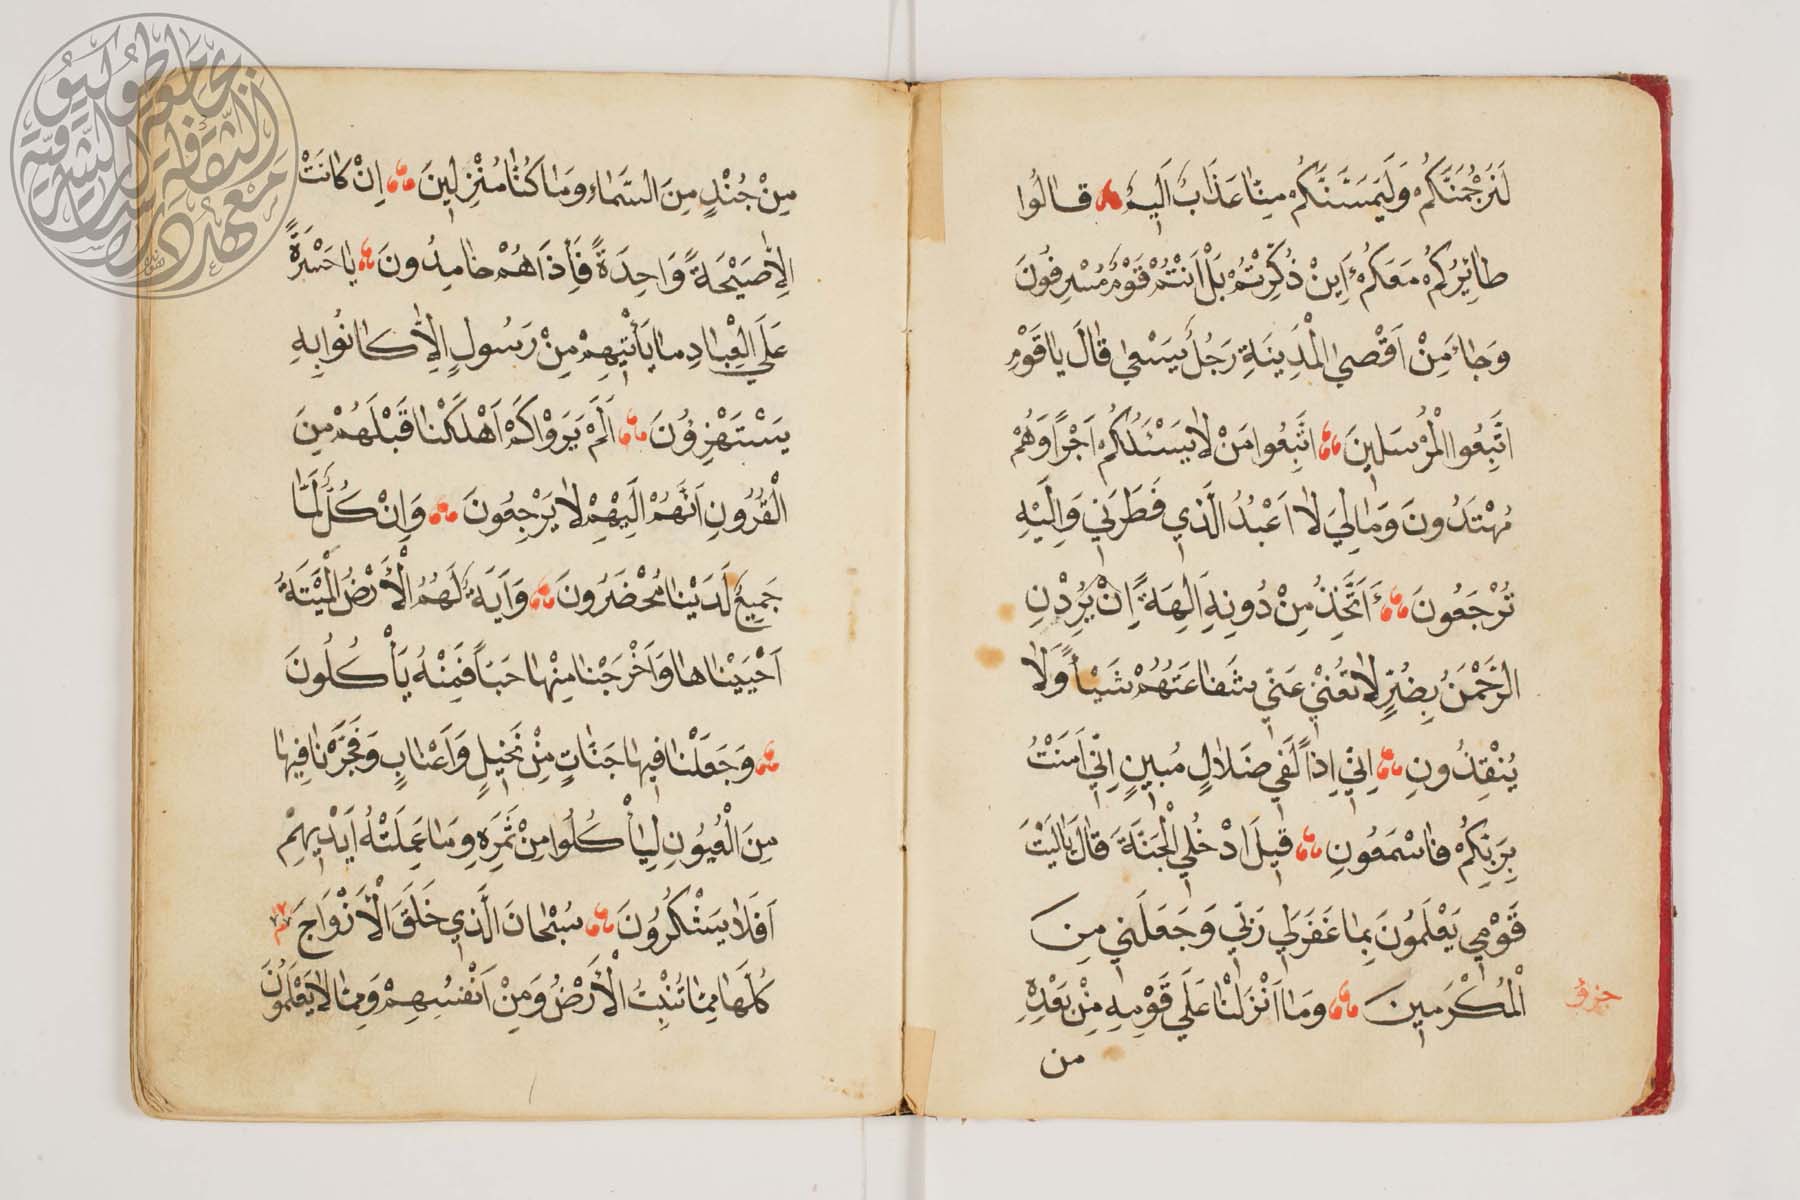 لَنَرْجُمَنَّكُمْ وَلَيَمَسَّنَّكُمْ مِنَّا عَذَابٌ اَلِيمٌ قَالُوا
طَائِرُكُمْ مَعَكُمْ اَئِنْ ذُكِّرْتُمْ بَلْ اَنْتُمْ قَوْمٌ مُسْرِفُونَ
وَجَاءَ مِنْ اَقْصَى الْمَدِينَةِ رَجُلٌ يَسْعَى قَالَ يَاقَوْمِ
اتَّبِعُوا الْمُرْسَلِينَ اتَّبِعُوا مَنْ لَا يَسْئَلُكُمْ اَجْرًا وَهُمْ
مُهْتَدُونَ وَمَالِيَ لَا اَعْبُدُ الَّذِي فَطَرَنِي وَاِلَيْهِ
تُرْجَعُونَ ءَاَتَّخِذُ مِنْ دُونِهِ اَلِهَةً اِنْ يُرِدْنِ
الرَّحْمَنُ بِضُرٍّ لَا تُغْنِ عَنِّي شَفَاعَتُهُمْ شَيْئًا وَلَا
يُنْقِذُونِ اِنِّي اِذًا لَفِي ضَلَالٍ مُبِينٍ اِنِّي اَمَنْتُ
بِرَبِّكُمْ فَاسْمَعُونِ قِيلَ ادْخُلِ الْجَنَّةَ قَالَ يَالَيْتَ
قَوْمِي يَعْلَمُونَ بِمَا غَفَرَلِي رَبِّي وَجَعَلَنِي مِنَ
الْمُكْرَمِينَ وَمَا اَنْزَلْنَا عَلَى قَوْمِهِ مِنْ بَعْدِهِ
جزؤ
من
مِنْ جُنْدٍ مِنَ السَّمَاءِ وَمَا كُنَّا مُنْزِلِينَ اِنْ كَانَتْ
اِلَّا صَيْحَةً وَاحِدَةً فَاِذَا هُمْ خَامِدُونَ يَا حَسْرَةً
عَلَى الْعِبَادِ مَا يَأْتِيهِمْ مِنْ رَسُولٍ اِلَّا كَانُوا بِهِ
يَسْتَهْزِؤُنَ اَلَمْ يَرَوْا كَمْ اَهْلَكْنَا قَبْلَهُمْ مِنَ
الْقُرُونِ اَنَّهُمْ اِلَيْهِمْ لَا يَرْجِعُونَ وَاِنْ كُلٌّ لَمَّا
جَمِيعٌ لَدَيْنَا مُحْضَرُونَ وَاَيَةٌ لَهُمُ الْأَرْضُ الْمَيْتَةُ
اَحْيَيْنَاهَا وَاَخْرَجْنَا مِنْهَا حَبًّا فَمِنْهُ يَأْكُلُونَ
وَجَعَلْنَا فِيهَا جَنَّاتٍ مِنْ نَخِيلٍ وَاَعْنَابٍ وَفَجَّرْنَا فِيهَا
مِنَ الْعُيُونِ لِيَأْكُلُوا مِنْ ثَمَرِهِ وَمَا عَمِلَتْهُ اَيْدِيهِمْ
اَفَلَا يَشْكُرُونَ سُبْحَانَ الَّذِي خَلَقَ الْأَزْوَاجَ
كُلَّهَا مِمَّا تُنْبِتُ الْأَرْضُ وَمِنْ اَنْفُسِهِمْ وَمِمَّا لَا يَعْلَمُونَ